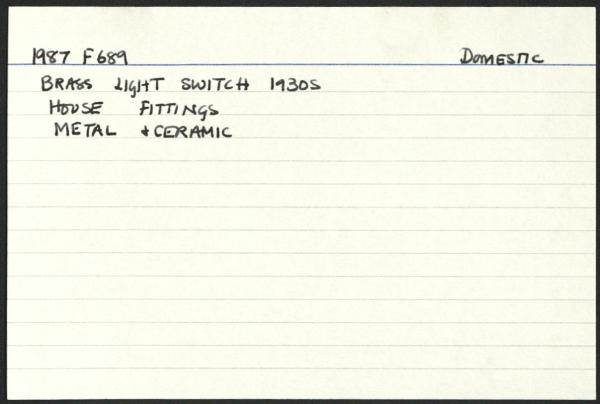 1987 F689 DOMESTIC
BRASS LIGHT SWITCH 1930S
HOUSE FITTINGS
METAL + CERAMIC